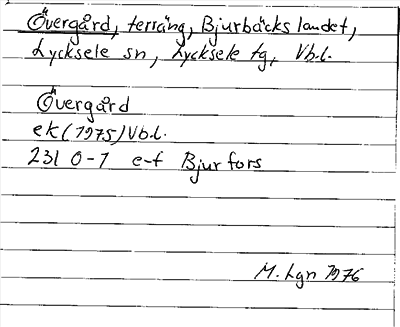 Övergård, terräng, Bjurbäckslandet,
Lycksele sn, Lycksele tg, Vb.l.
Övergård
ek (1975) Vb.l.
231 0-1 e-f Bjurfors
M. Lgn 1976